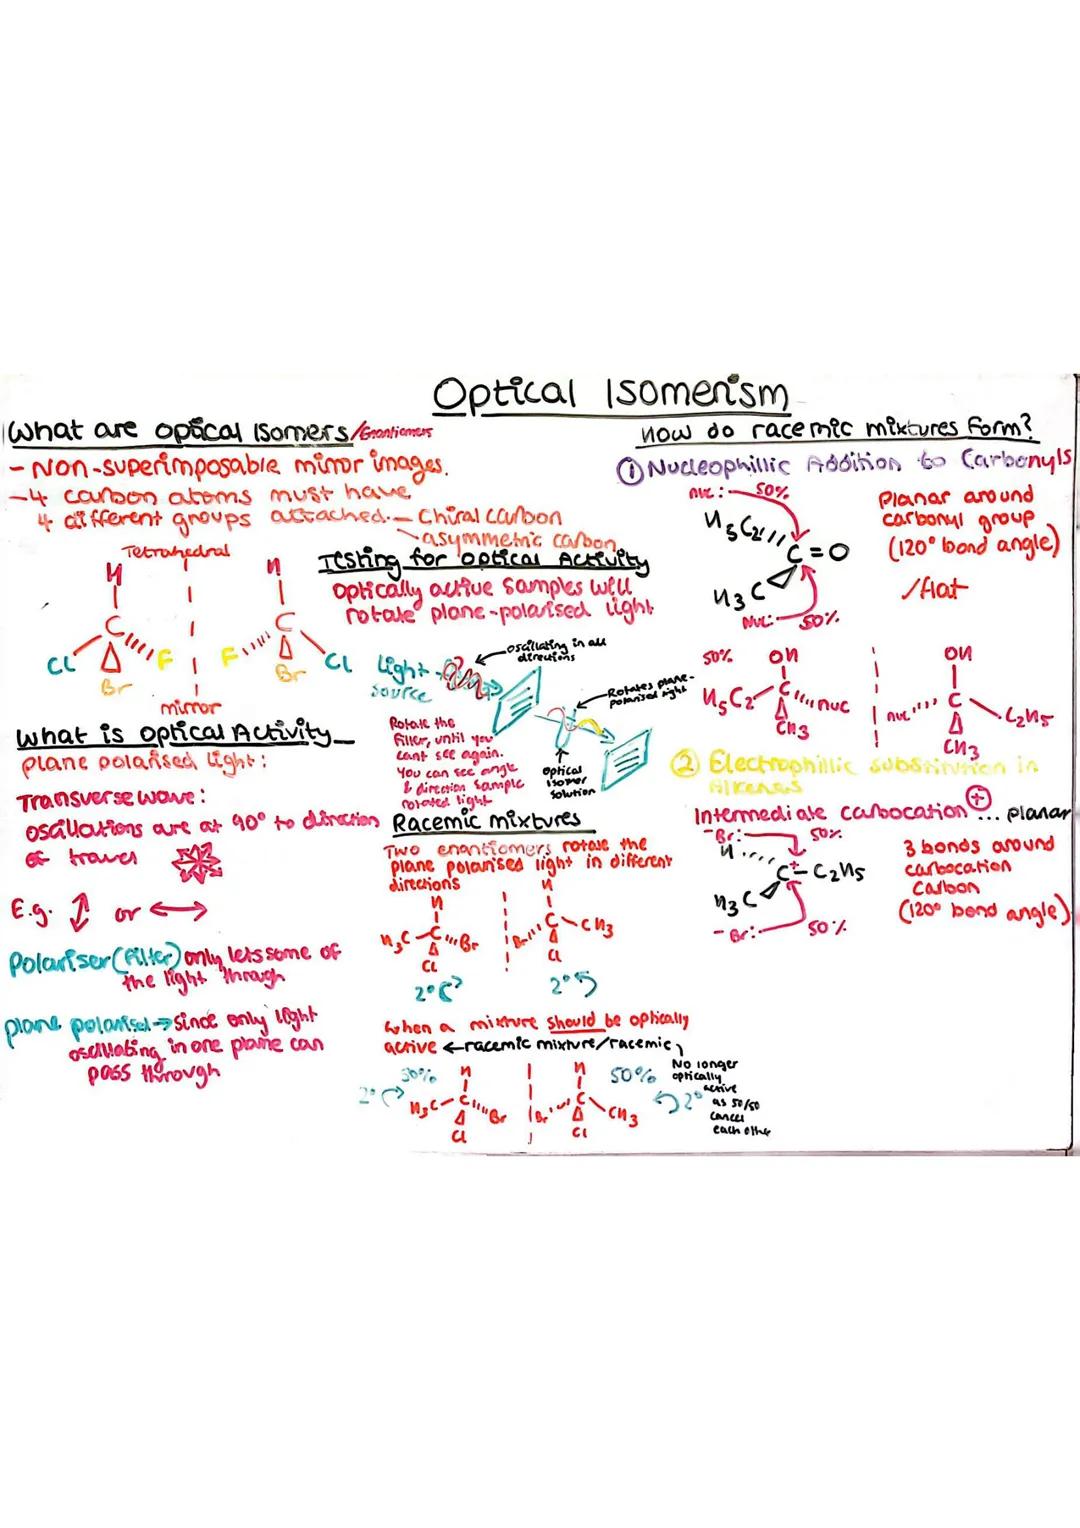 Optical Isomerism
What are optical isomers/Enantiomers
- Non-superimposable mirror images.
- 4 carbon atoms must have
4 different groups attached. - Chiral carbon
asymmetric carbon
Tetrahedral
H H
C C
Cl F F Cl
Br Br
mirror
What is optical Activity
plane polarised light:
Transverse wave:
oscillations are at 90° to direction
of travel
E.g. or
Polariser (filter) only lets some of
the light through
plane polarised → since only light
oscillating in one plane can
pass through
Testing for optical Activity
optically active samples will
rotate plane-polarised light
oscillating in all
directions
Light
source
Rotates plane-
polarised light
Rotate the
filter, until you
cant see again.
You can see angle
& direction sample
rotated light
optical
isomer
solution
Racemic mixtures
Two enantiomers rotate the
plane polarised light in different
directions
H H
H3C C Br Br C CH3
Cl Cl
2° 2°
when a mixture should be optically
active ← racemic mixture/racemic
50% H H 50%
2° H3C C Br Br C CH3 2°
Cl Cl
No longer
optically
active
as 50/50
cancel
each other
How do racemic mixtures form?
① Nucleophillic Addition to Carbonyls
nuc: 50%
H5C2 C=O
H3C
Nuc: 50%
Planar around
carbonyl group
(120° bond angle)
/flat
50% OH OH
H5C2 C nuc nuc C C2H5
CH3 CH3
② Electrophillic substitution in
Alkenes
Intermediate carbocation + ... planar
-Br: 50%
H C+ - C2H5
H3C
-Br: 50%
3 bonds around
carbocation
Carbon
(120° bond angle)